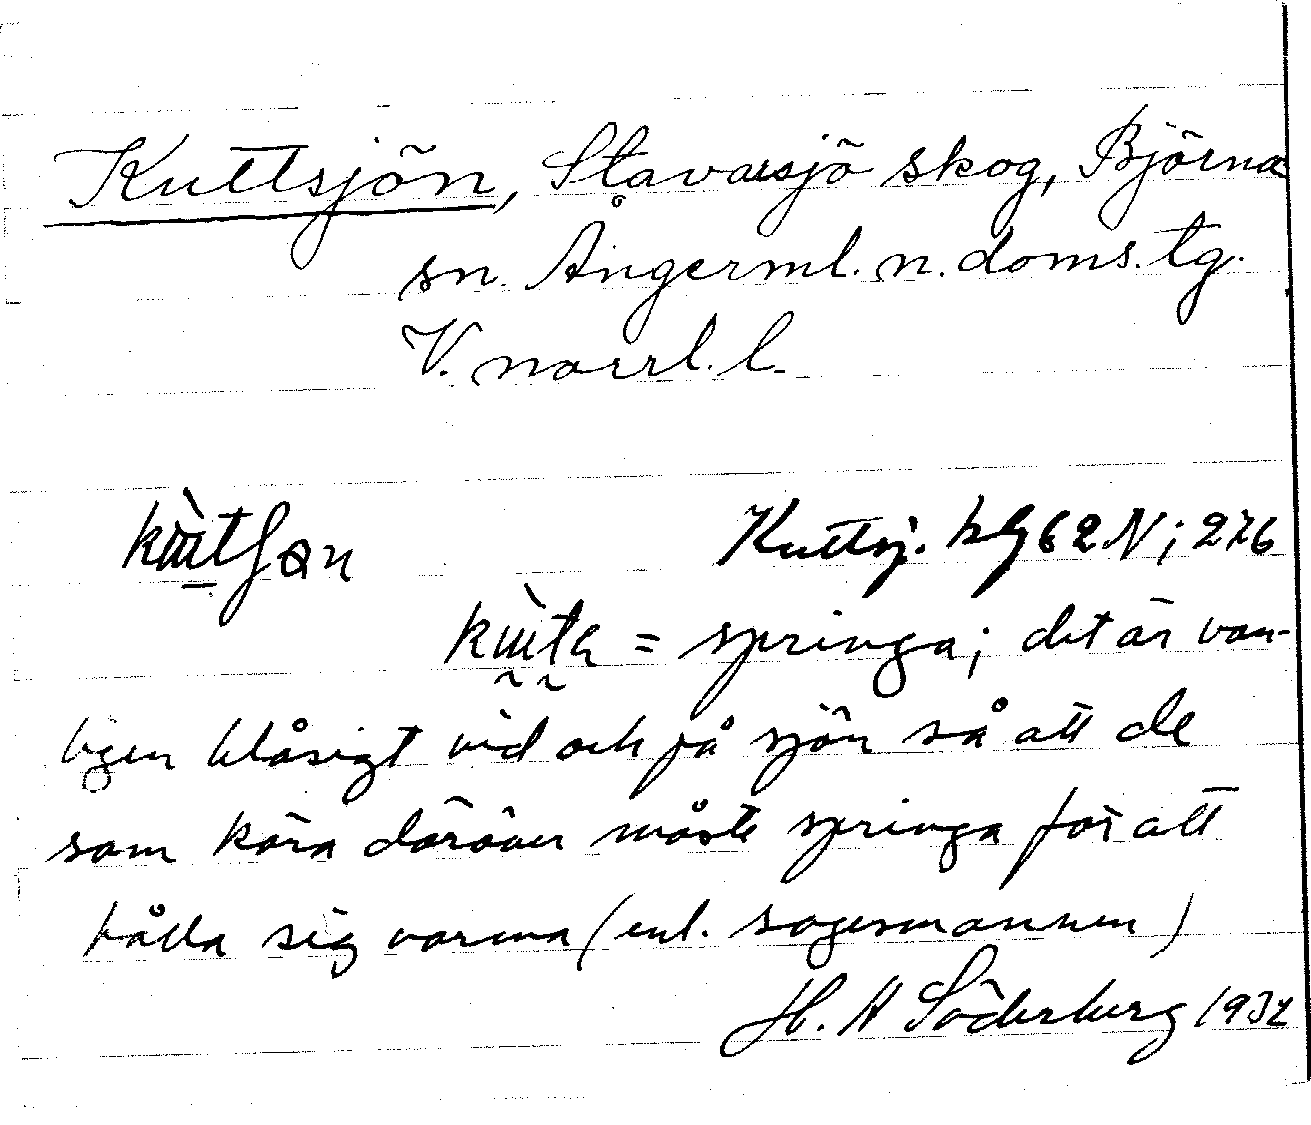 Kuttsjön, Stavarsjö skog, Björna
sn. Ångerml. n. doms. tg.
V. norrl. l.
Kuttsj. blg 62 N; 276
= springa; det är van-
ligen blåsigt vid och på sjön så att de
som köra däröver måste springa för att
hålla sig varma (enl. sagesmannen)
H. A Söderberg 1932